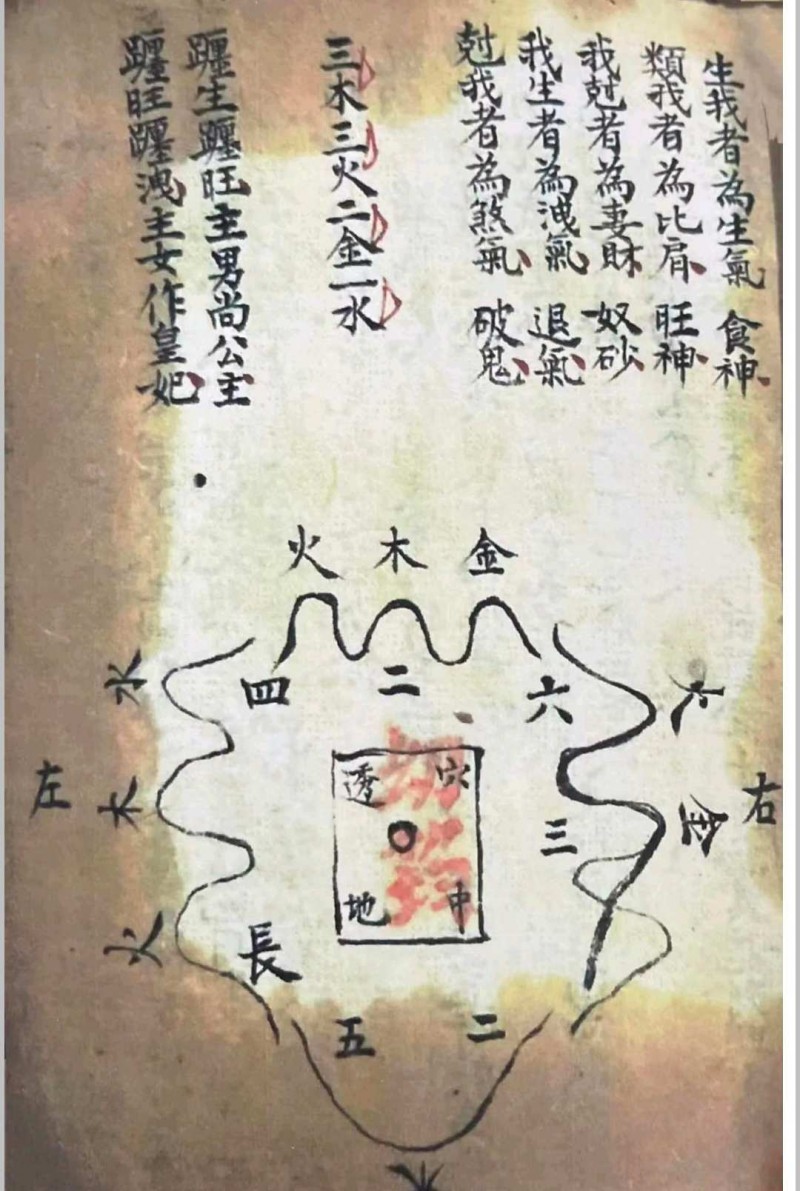 生我者為生氣 食神
類我者為比肩 旺神
我尅者為妻財 奴砂
我生者為洩氣 退氣
尅我者為煞氣 破鬼
三木三火二金一水
躔生躔旺主男尚公主
躔旺躔洩主女作皇妃
火 木 金
水 四 二 六 火
左 木 三 金 右
透 穴
地 中
火 長
五 二
水